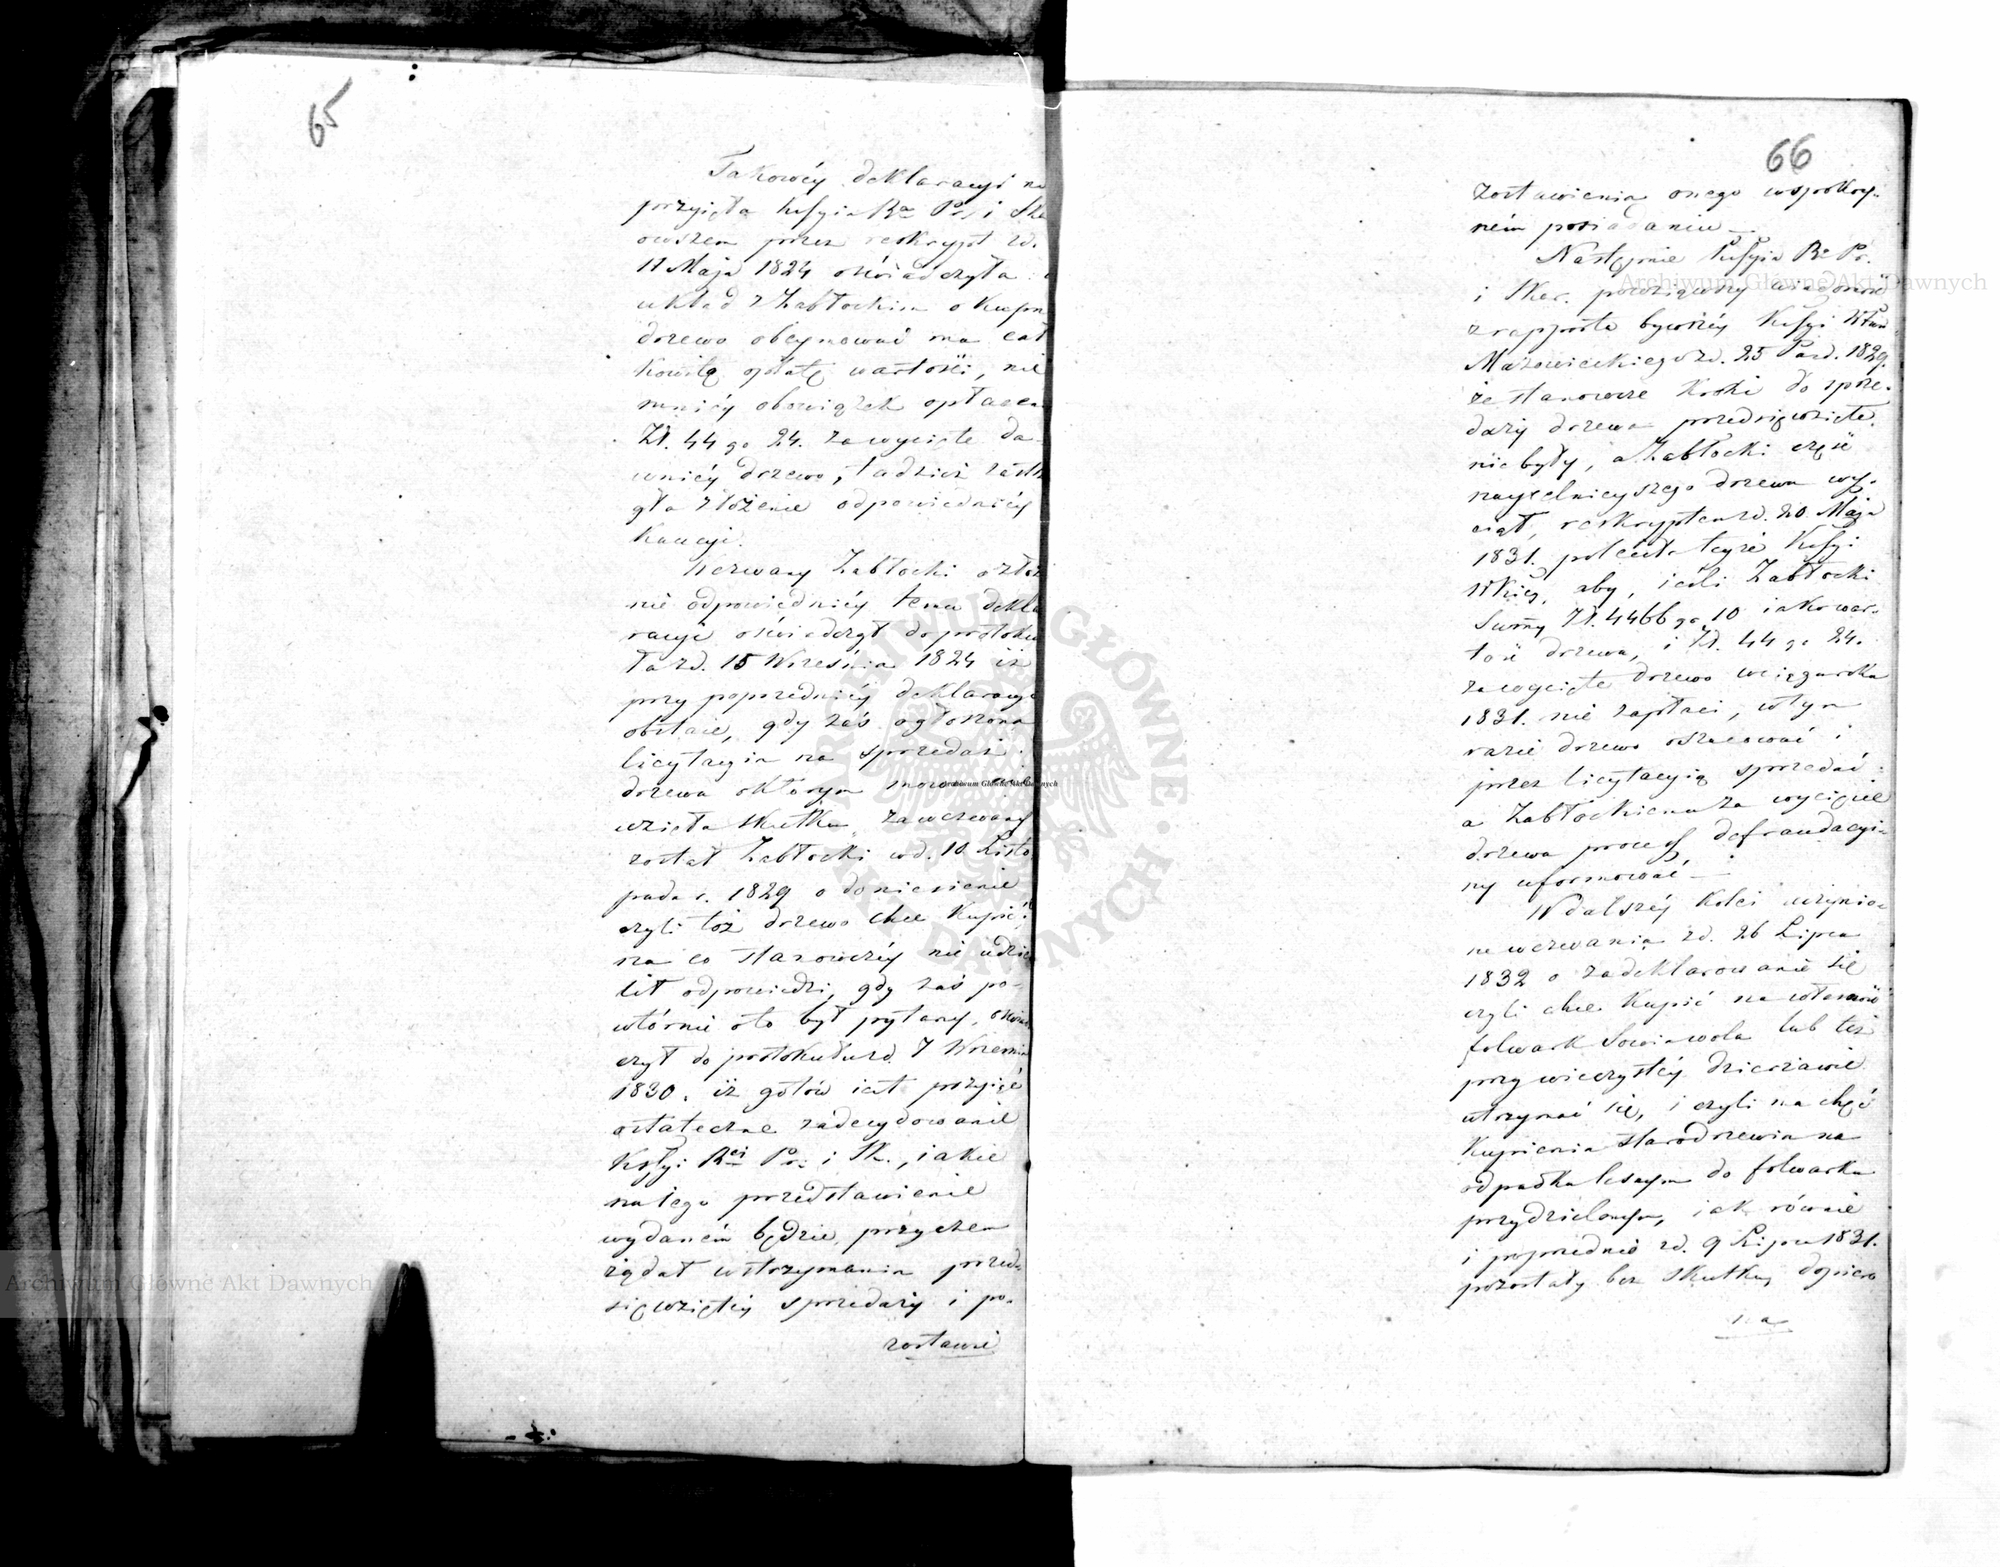 65
Takowéy deklaracyi n
przyięła Kssyia Rz. Pr. i Sk
owszem przez reskrypt zd.
11 Maja 1824 oświadczyła
układ z Zabłockim o kupn
drzewa obeymować ma cał
kowitą opłatę wartości, nie
mniéy obowiązek opłacen
Zł. 44 gr 24. za wycięte da
wniéy drzewo, tudzież
złożenie odpowiedniéy
Kaucyi.
Wezwany Zabłocki
nie odpowiedniéy temu dekla
racyi oświadczył do protoku
łu zd. 15 Września 1824 iż
przy poprzedniéy deklaracyi
obstaie, gdy zaś ogłoszona
licytacyia na sprzedaż
drzewa o którym mowa nie
wzięła skutku, zawezwany
został Zabłocki wd. 10 Listo
pada r. 1829 o doniesienie
czyli toż drzewo chce kupić;
na co stanowczéy nie udzie
lił odpowiedzi, gdy zaś po-
wtórnie oto był pytany, oświad
czył do protokułu zd. 7 Wrzesnia
1830. iż gotów iest przyiąć
ostateczne zadecydowanie
Kssyi Rz. Pr. i Sk., iakie
na iego przedstawienie
wydaném będzie, przyczem
żądał wstrzymania przed-
sięwziętéy sprzedaży i po-
zostawie
66
zostawienia onego wspokoy-
ném posiadaniu
Następnie Kssyia Rz. Pr.
i Skar. powziąwszy wiadomość
z rapportu bywszéy Kssyi Wtwa
Mazowieckiego zd. 25 Pazd. 1829.
że stanowcze kroki do sprze-
daży drzewa przedsięwzięte.
nie były, a Zabłocki część
nayzelnieyszego drzewa wy-
ciął, reskryptem zd. 20 Maja
1831. poleciła teyże Kssyi
Wtkiey, aby, ieśli Zabłocki
Summy Zł. 4466 gr. 10 iako war-
tość drzewa, i Zł. 44 gr 24.
za wycięte drzewo wciągu roku
1831. nie zapłaci, wtym
razie drzewo oszacować i
przez licytacyią sprzedać;
a Zabłockiemu za wycięcie
drzewa process defraudacyi-
ny uformować
W dalszéy kolei uczynio-
ne wezwania zd. 26 Lipca
1832 o zadeklarowanie się
czyli chce kupić na własność
folwark Sowiawola lub też
przy wieczystéy dzierżawie
utrzymać się, i czyli ma chęć
kupienia starodrzewia na
odpadku lesnym do folwarku
przydzielonym, iak równie
i poprzednie zd. 9 Lipca 1831.
pozostały bez skutku, dopiero
na
Archiwum Główne Akt Dawnych
Archiwum Główne Akt Dawnych
Archiwum Główne Akt Dawnych
ARCHIWUM GŁÓWNE AKT DAWNYCH